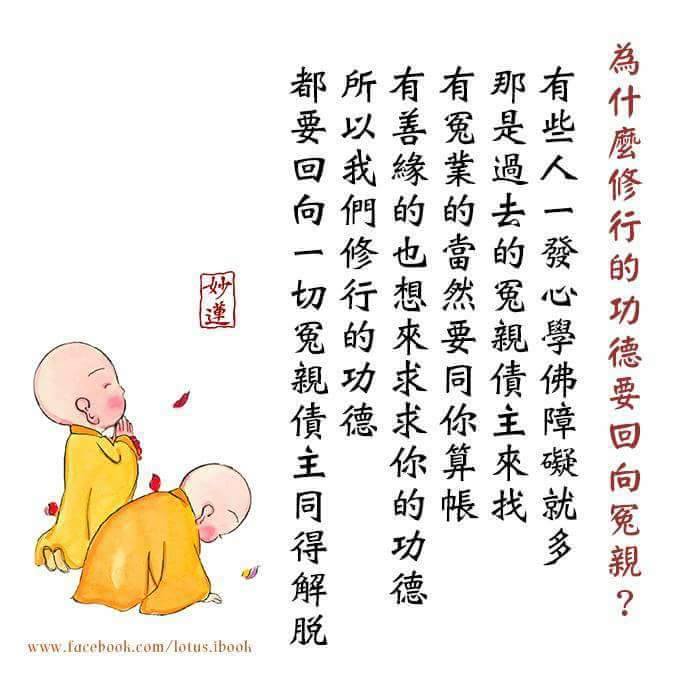 為什麼修行的功德要回向冤親？
有些人一發心學佛障礙就多
那是過去的冤親債主來找
有冤業的當然要同你算帳
有善緣的也想來求求你的功德
所以我們修行的功德
都要回向一切冤親債主同得解脫
妙蓮
www.facebook.com/lotus.ibook